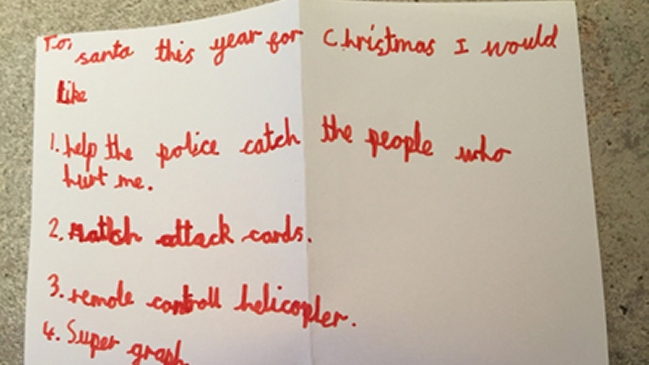 To, santa this year for Christmas I would
like
1. help the police catch the people who
hurt me.
2. Match attack cards.
3. remote controll helicopter.
4. Super graph